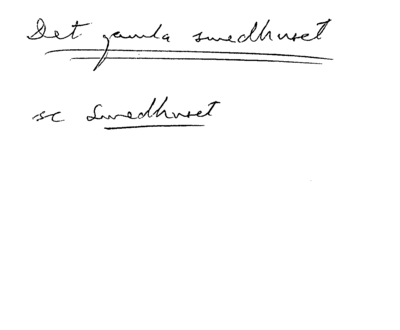 Det gamla smedhuset
se Smedhuset